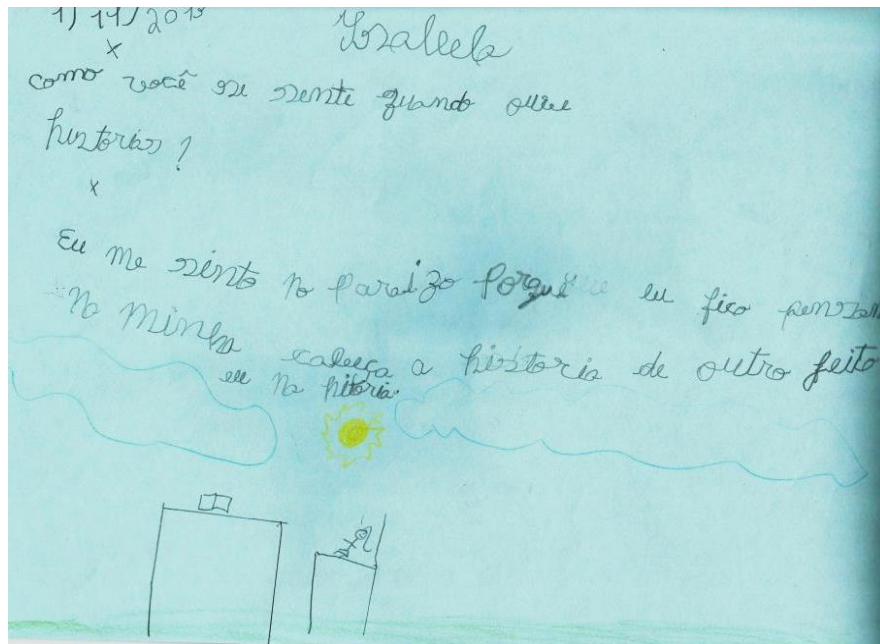 Izabela
x
como você se sente quando ouve
histórias ?
x
Eu me sinto no paraizo porque eu fico pensan
no minha cabeça a historia de outro feito
eu na hitoria.